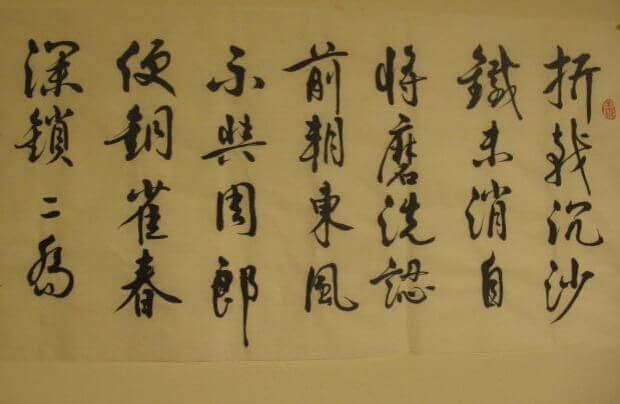 折戟沉沙
鐵未消自
將磨洗認
前朝東風
不與周郎
便銅雀春
深鎖二喬